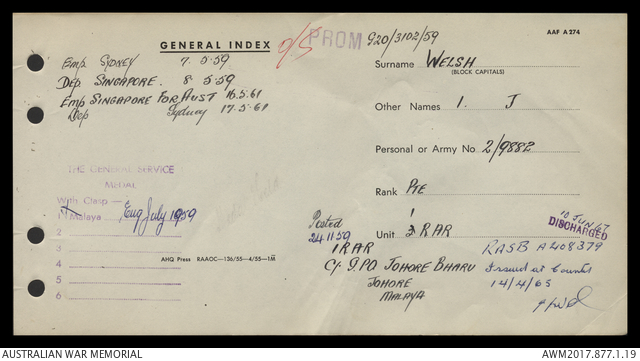 GENERAL INDEX
O/S
PROM
G20/3102/59
AAF A 274
Emp SYDNEY 7.5.59
Dep SINGAPORE. 8.5.59
Emp SINGAPORE FOR AUST 16.5.61
Dep Sydney 17.5.61
THE GENERAL SERVICE
MEDAL
With Clasp —
1 Malaya Eng July 1959
2
3
4
5
6
AHQ Press RAAOC—136/55—4/55—1M
Surname WELSH
(BLOCK CAPITALS)
Other Names 1. J
Personal or Army No. 2/9882
Rank PTE
1
Unit 3 RAR
10 JUN 67
DISCHARGED
Posted
24 11 59
1 RAR
C/- GPO JOHORE BHARU
JOHORE
MALAYA
RASB A408379
Issued at Counter
14/4/65
AUSTRALIAN WAR MEMORIAL
AWM2017.877.1.19